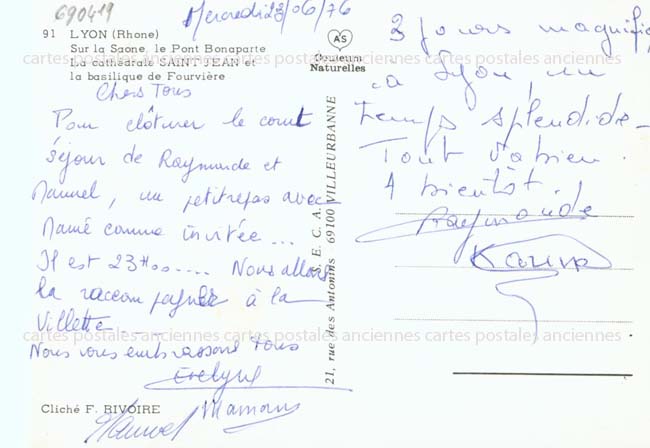 690419
Mercredi 23/06/76
91 LYON (Rhone)
Sur la Saone, le Pont Bonaparte
La cathédrale SAINT JEAN et
la basilique de Fourvière
AS
Couleurs
Naturelles
Chers Tous
Pour clôturer le court
séjour de Raymonde et
Manuel, un petit repas avec
Mamé comme invitée...
Il est 23H00.... Nous allons
la raccompagner à la
Villette
Nous vous embrassons tous
Evelyne
Manuel Maman
Cliché F. RIVOIRE
S. E. C. A.
21, rue des Antonins 69100 VILLEURBANNE
3 jours magnifiq
à Lyon, un
temps splendide-
Tout va bien.
A bientôt.
Raymonde
Karine
cartes postales anciennes cartes postales anciennes cartes postales anciennes